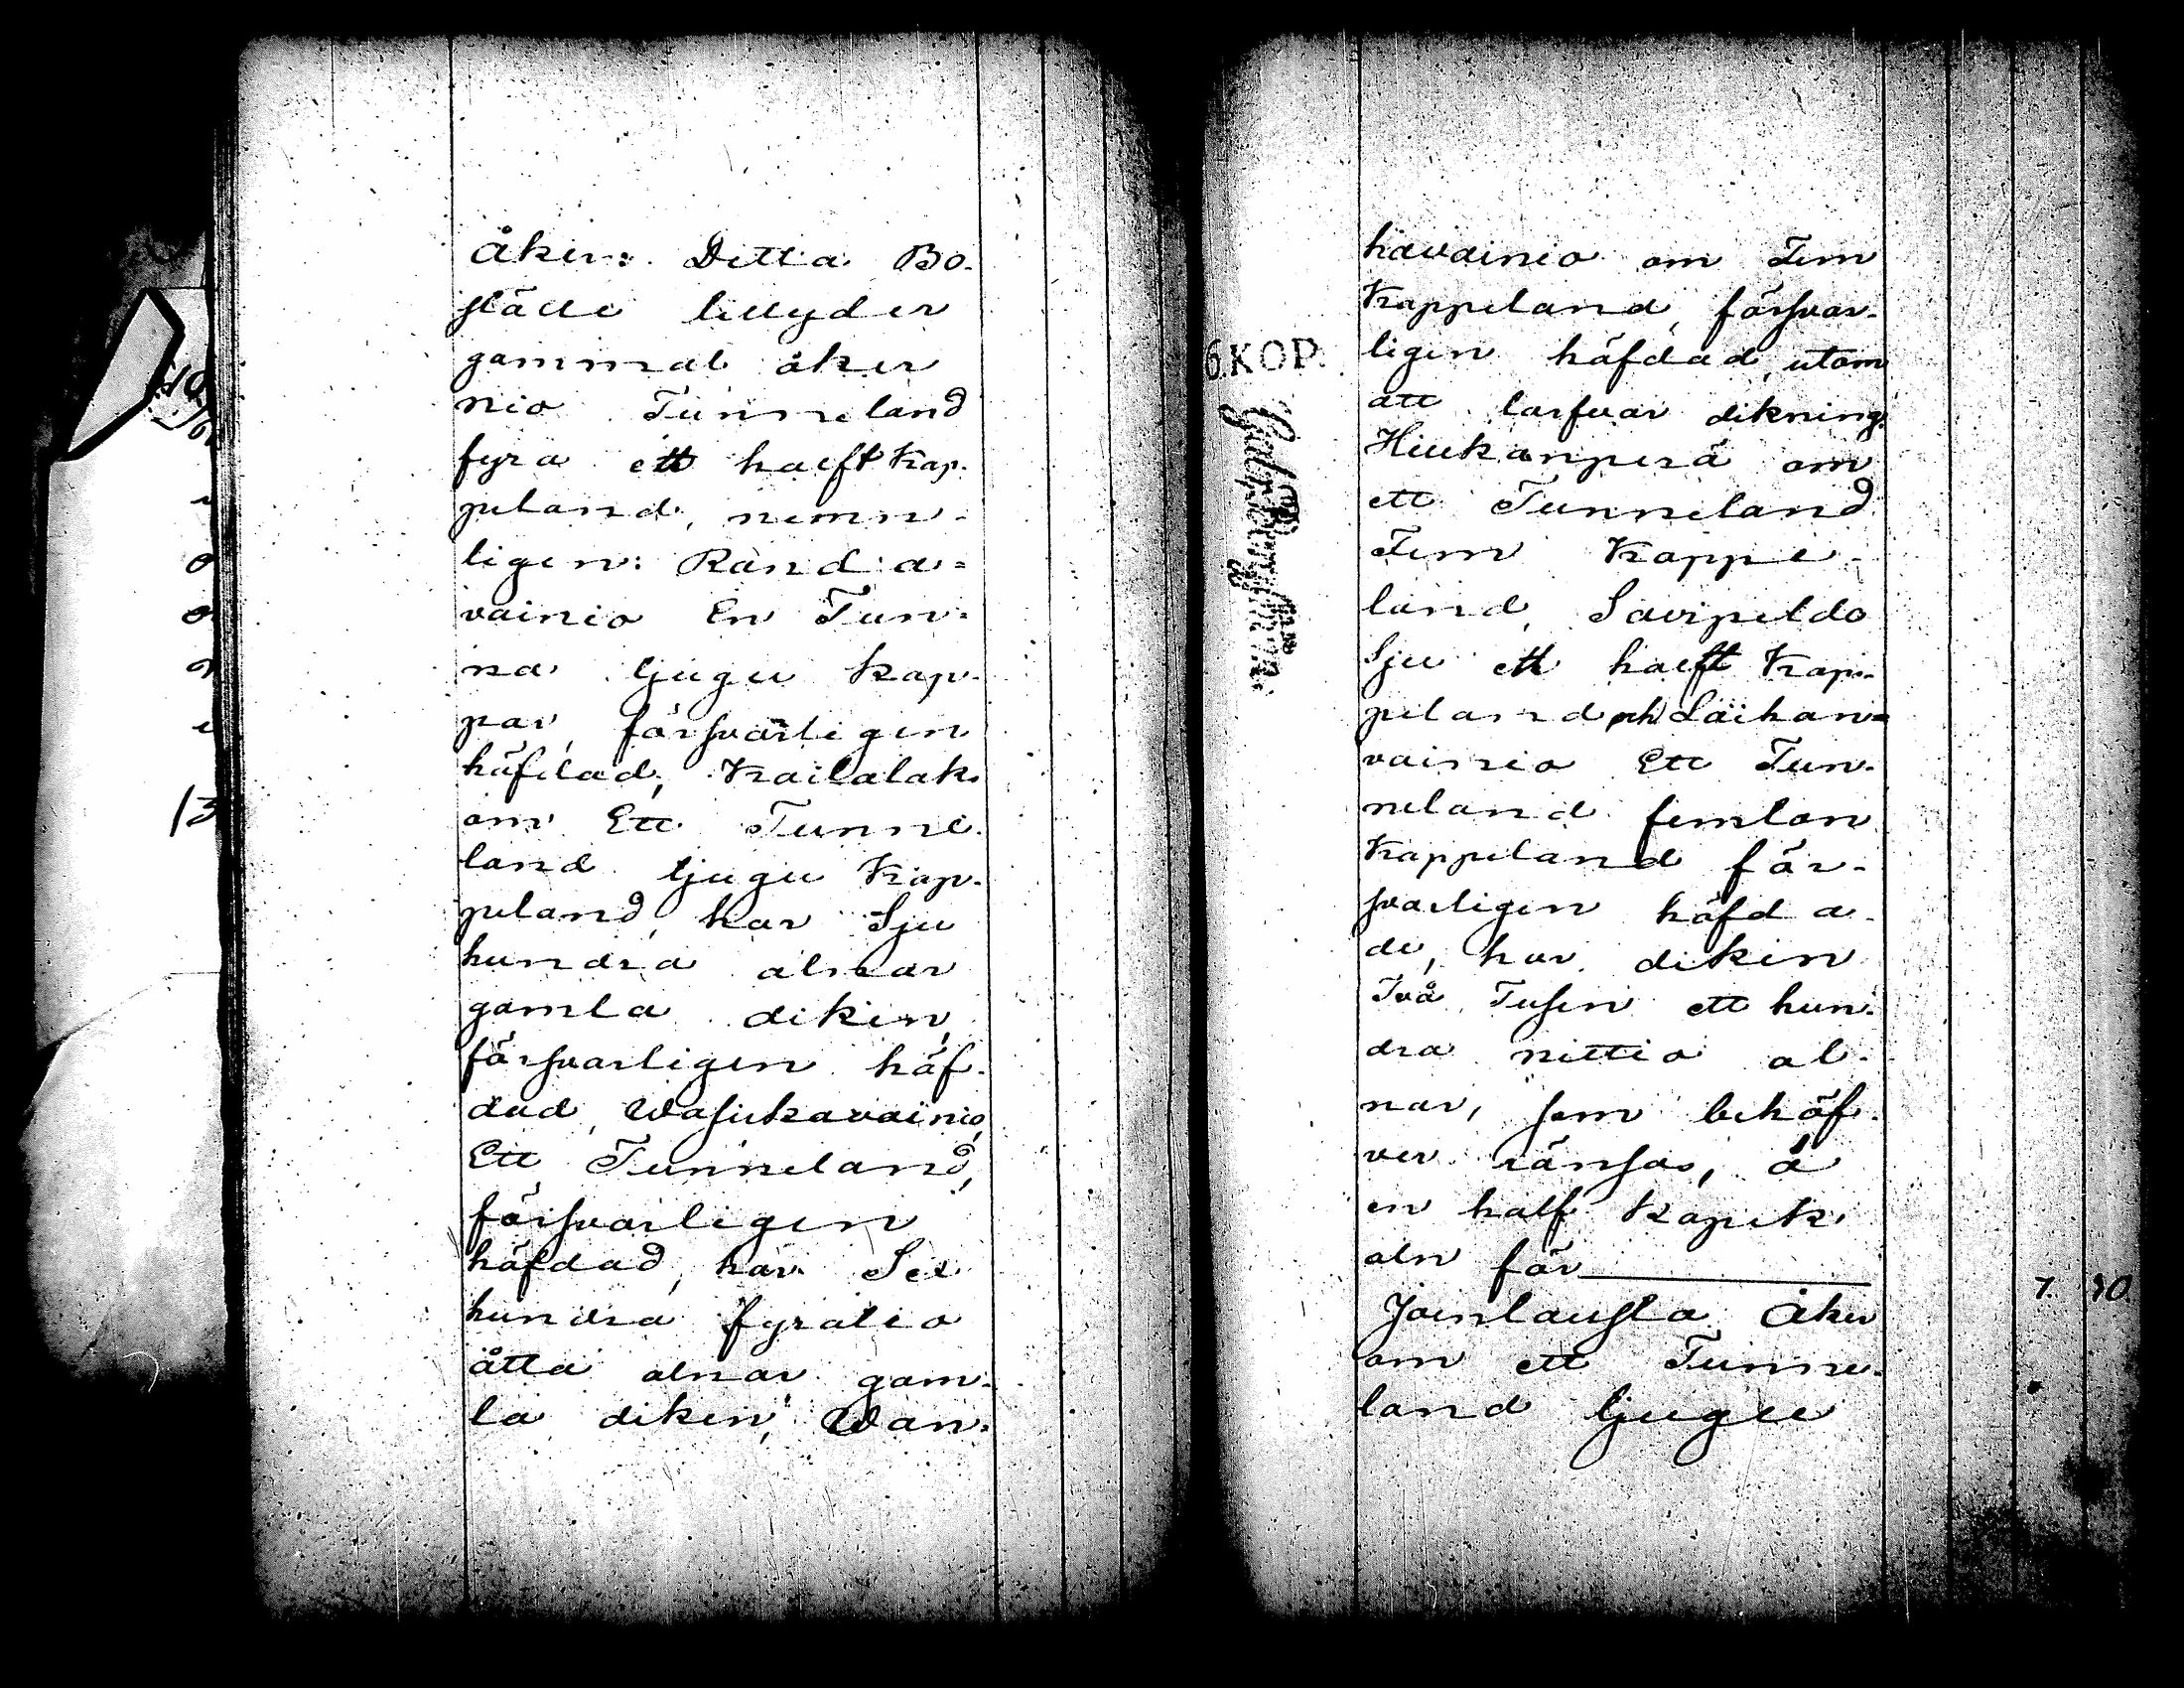 åker: Detta Bo-
ställe tillyder
gammal åker
nio Tunneland
fyra ett halft Kap-
peland, nemn-
ligen: Randa-
vainio En Tun-
na tjugu kap-
par, försvarligen
häfdad, Kailalak
om Ett Tunne-
land tjugu Kap-
peland, har Sju
hundra alnar
gamla diken,
försvarligen häf-
dad, Wasukavainio,
Ett Tunneland,
försvarligen
häfdad, har Sex
hundra fyratio
åtta alnar gam-
la diken, Wan-
havainio om Fem
Kappeland, försvar-
ligen häfdad, utom
att tarfvar dikning.
Hiukanperä om
ett Tunneland
Fem Kappe-
land, Savipeldo
Sju ett halft Kap-
peland och Laihan-
vainio Ett Tun-
neland femton
Kappeland för-
svarligen häfda-
de, har diken
Två Tusen ett hun-
dra nittio al-
nar, som behöf-
ver ränsas, á
en half kopek
aln för
7. 40
Joenlausta Åker
om ett Tunne-
land tjugu
6. KOP.
13